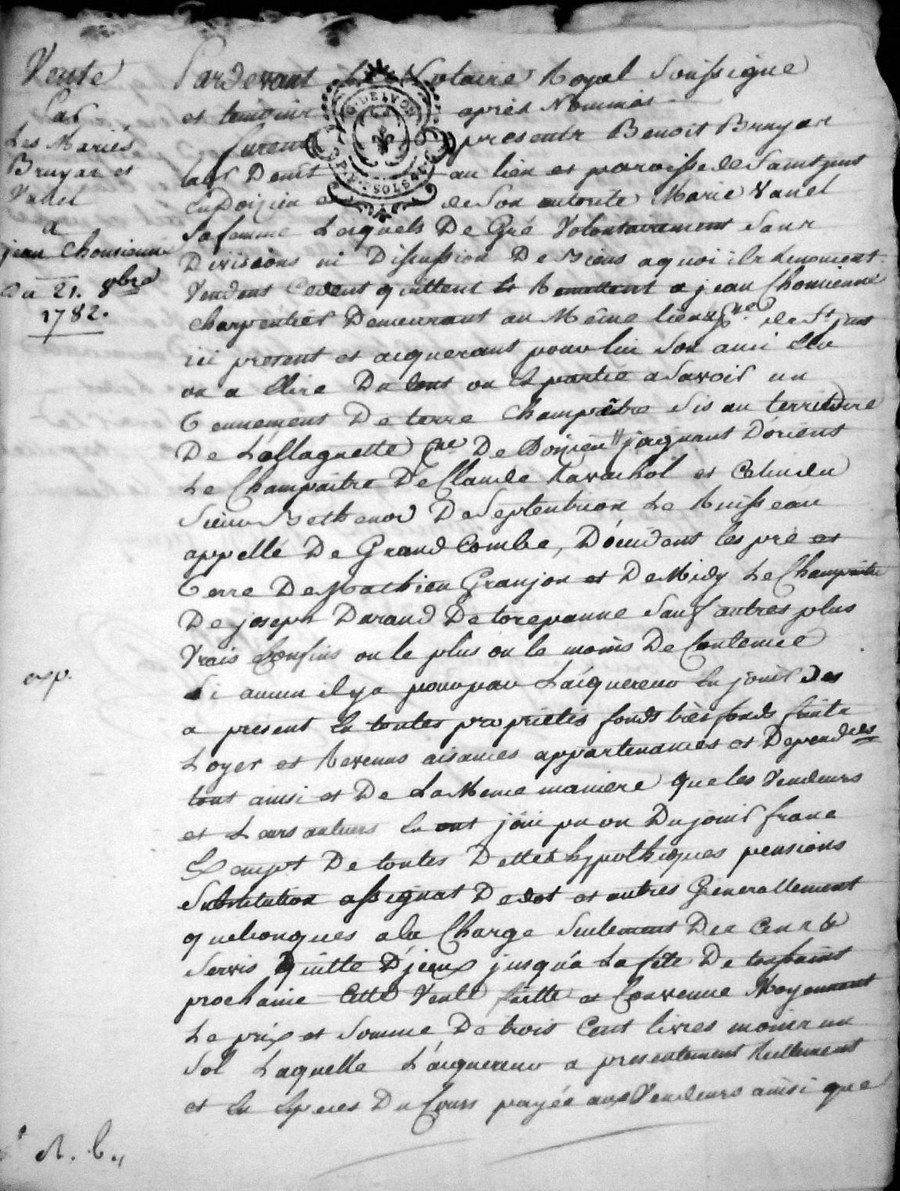 Vente
Par
Les Mariés
Bruyas et
Vanel
a
jean Chomienne
Du 21. 8bre
1782.
exp.
Pardevant Le Notaire Royal Soussigné
et temoins après Nommés
furent presents Benoit Bruyas
au lieu et paroisse de Saint just
En Doizieu et de Son autorité Marie Vanel
Sa femme Lesquels De Gré Volontairement Sans
Divisions ni Discussion De Biens a quoi ils renoncent
Vendent Cedent quittent et Remettent a jean Chomienne
charpentier Demeurant au Même lieu de St just
ici present et acquerant pour lui Son ami Elu
ou a Elire Du tout ou En partie a Savoir un
Tennement De terre Champêtre Sis au territoire
De Lallagnette De Doizieu joignant Dorient
Le Champaitre De Claude Ravachol et Celui du
Sieur Bethenod De Septentrion Le Ruisseau
appellé De Grand Combe, Doccident les pré et
Terre De Mathieu Granjon et De Midy Le Champaitre
De joseph Durand De torepanne Sauf autres plus
Vrais Confins ou le plus ou le moins De Contenue
Si aucun il y a pour par Lacquereur En jouir Des
a present En toutes propriétés fonds très fonds fruits
Loyer et Revenus aisances appartenances et Dependces
tout ainsi et De La Meme maniere que les Vendeurs
et Leurs auteurs En ont joui pu ou Du jouir franc
Exempt De toutes Dettes hypothéques pensions
Substitution assignat De dot et autres Generallement
quelconques a la Charge Seulement Des Cens &
Servis Quitte D'jceux jusqu'a La fête De toussaint
prochaine Cette Vente faitte et Convenue Moyennant
Le prix et Somme De trois Cent livres moins un
Sol Laquelle L'acquereur a presentement Réellement
et En Especes Du Cours payée aux Vendeurs ainsi que